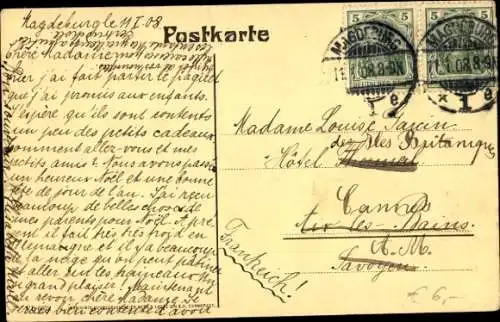 Magdeburg le 11 I. 08
Postkarte
Chère Madame
hier j'ai fait partir le paquet
que j'ai promis aux enfants.
J'espère qu'ils sont contents
un peu des petits cadeaux.
Comment allez-vous et mes
petits amis? Nous avons passé
un heureux Noël et une bonne
fête de jour de l'an. J'ai reçu
beaucoup de belles choses de
mes parents pour Noël. A pré-
sent il fait très très froid en
Allemagne et il y a beaucoup
de la neige qu'on peut patiner
et aller sur les traineaux. Un
grand plaisir! Maintenant
au revoir chère Madame. Je
serais bien contente d'avoir
MAGDEBURG
11.1.08.8-9N
* 1 e
MAGDEBURG
11.1.08.8-9N
* 1 e
5 5
5 5
Madame Louise
des Iles Britanniques
Hôtel
Cannes
Aix-les-Bains
A. M.
Savoyen
Frankreich!
€ 6,-